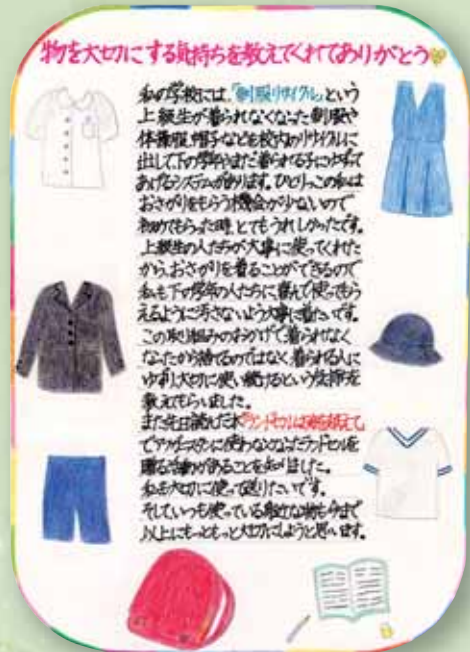 物を大切にする気持ちを教えてくれてありがとう
私の学校には、「制服リサイクル」という
上級生が着られなくなった制服や
体操服、帽子などを校内のリサイクルに
出して下の学年のまだ着られる子にゆずって
あげるシステムがあります。ひとりっこの私は
おさがりをもらう機会が少ないので
初めてもらった時、とてもうれしかったです。
上級生の人たちが大事に使ってくれた
から、おさがりを着ることができるので
私も下の学年の人たちに喜んで使ってもら
えるように汚さないよう大事に着たいです。
この取り組みのおかげで着られなく
なったから捨てるのではなく、着られる人に
ゆずり、大切に使い続けるという
教えてもらいました。
また先日読んだ本「ランドセルは海を越えて」
でアフガニスタンに使わなくなったランドセルを
贈る活動があることを知りました。
私も大切に使って送りたいです。
そして、いつも使っている身近な物も今まで
以上にもっともっと大切にしようと思います。